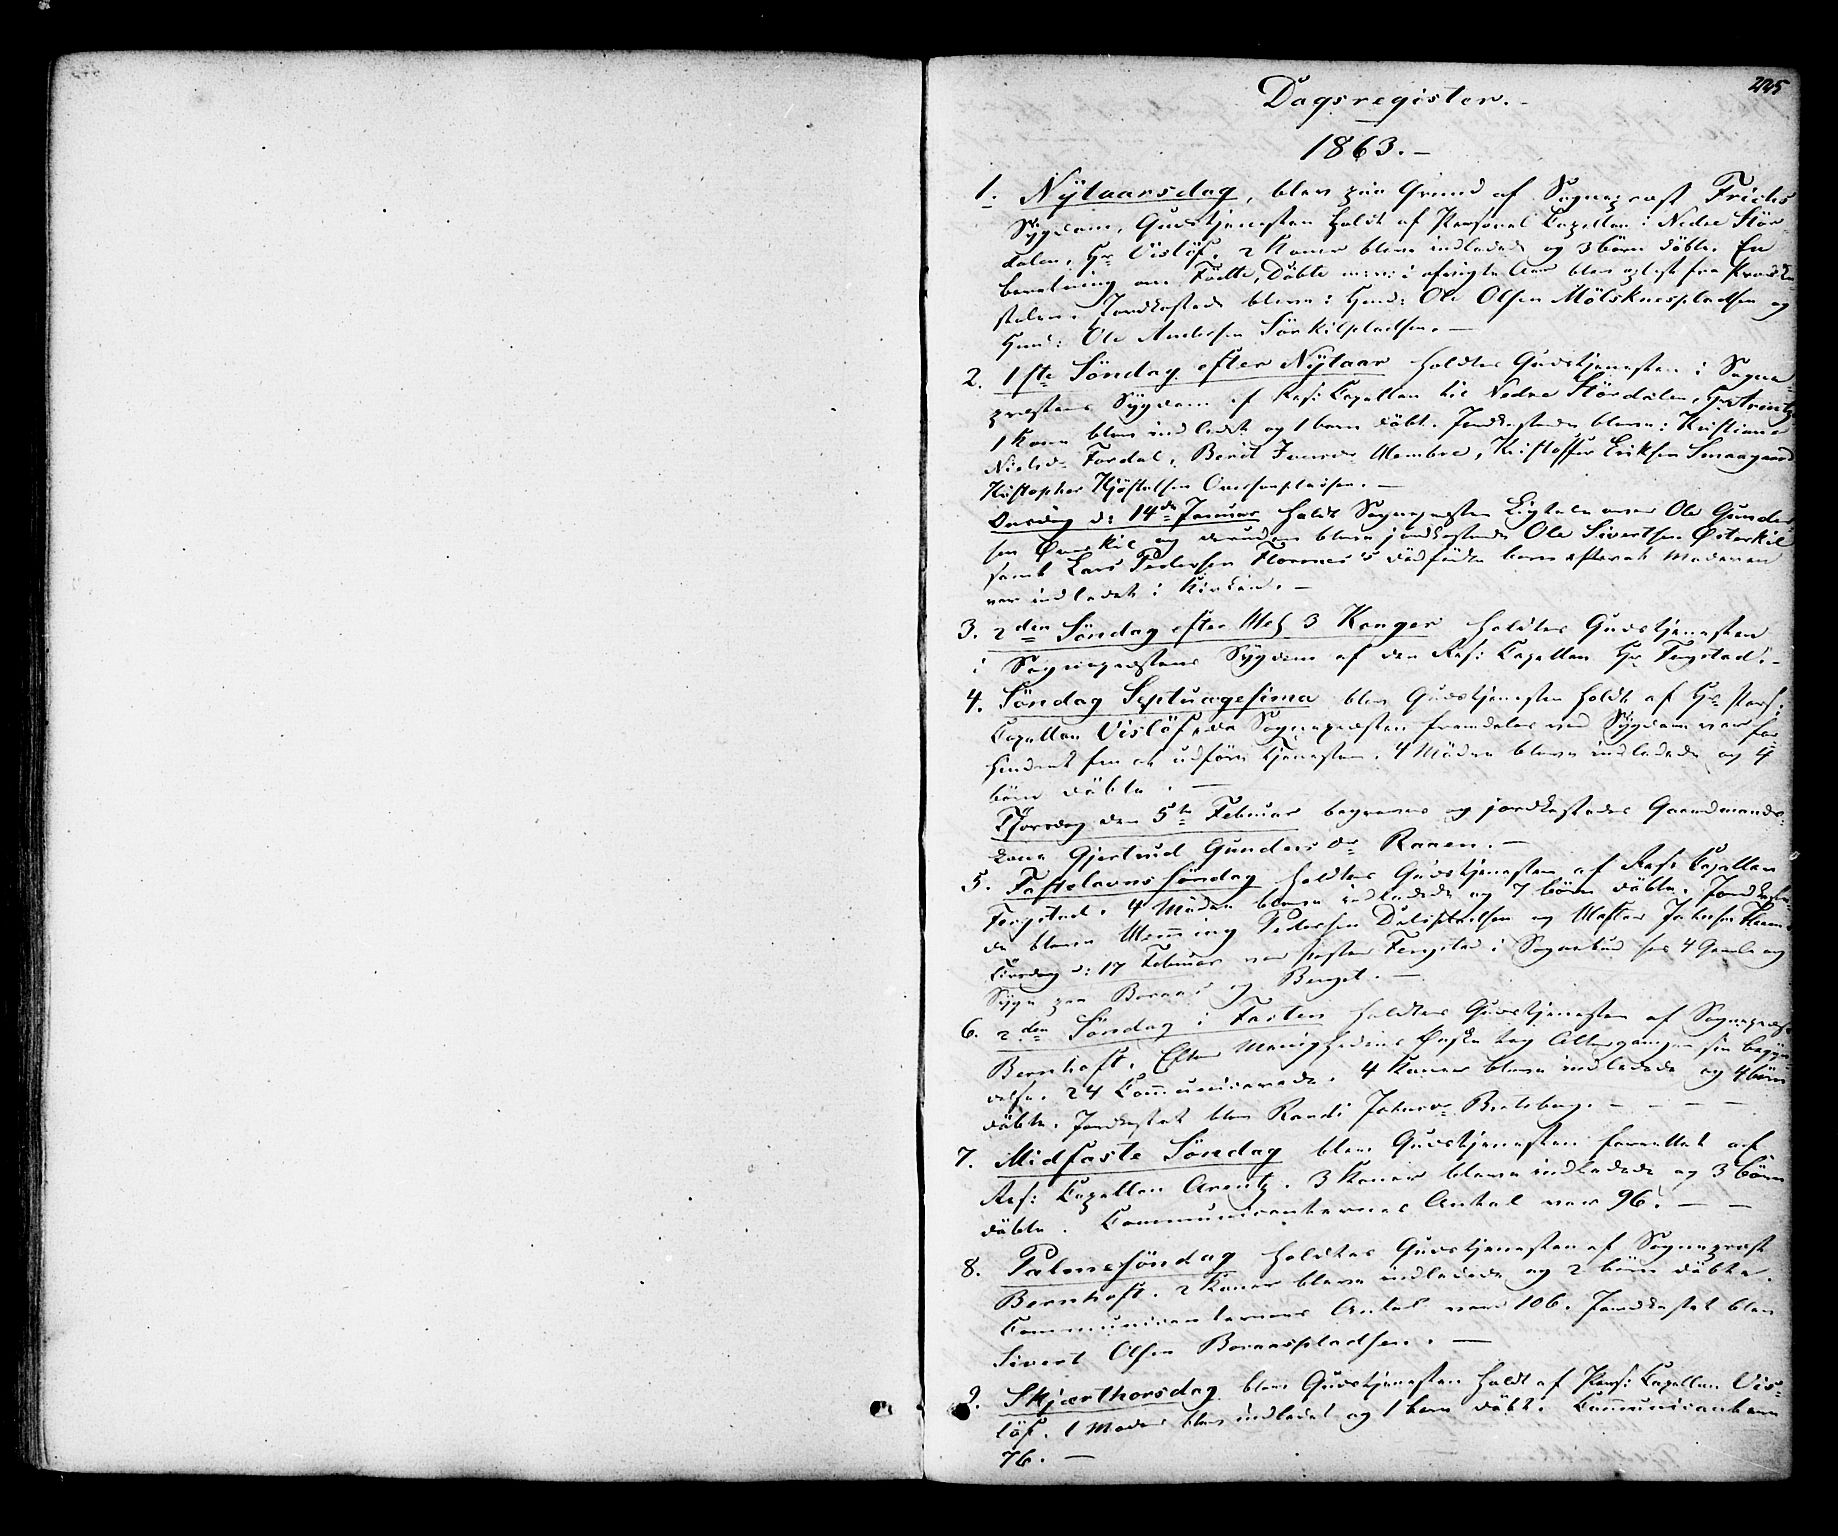 225
Dagsregister.
1863. –
1. Nÿtaarsdag, blev paa Grund af Sognepræst Frichs
Sÿgdom, Gudstjenesten holdt af Personel Capellan i Nedre Stör-
dalen, Hr Vislöf. 2 Koner bleve indledede og 3 börn döbte. En
beretning om Födte, Döbte m.m: i afvigte Aar blev oplæst fra Prædike-
stolen. Jordkastede bleve: Huusm: Ole Olsen Mölsknespladsen og
Huusm: Ole Andersen Sörkilpladsen. –
2. 1ste Söndag efter Nÿtaar holdtes Gudstjenesten i Sogne-
præstens Sÿgdom af Res: Capellan til Nedre Stördalen, Hr Arentz
1 Kone blev indledet og 1 barn döbt. Jordkastede bleve: Kristiane
Nielsdr Fordal, Berit Jensdr Membre, Kristoffer Eriksen Smaagaard
Kristopher Kjöstelsen
Onsdag d: 14de Januar holdt Sognepræsten Ligtale over Ole Gunder-
sen og desuden bleve jordkastede Ole Sivertsen Österkil
samt Lars Pedersen Flornes's dödfödte barn efterat Moderen
var indledet i Kirken. –
3. 2den Söndag efter Hel 3 Konger holdtes Gudstjenesten
i Sognepræstens Sÿgdom af den Res: Capellan Hr Fergstad. –
4. Söndag Septuagesima blev Gudstjenesten holdt af Hr Pers:
Capellan Vislöf, da Sognepræsten fremdeles ved Sÿgdom var for-
hindret fra at udföre Tjenesten. 4 Mödre bleve indledede og 4
börn döbte. –
Thorsdag den 5te Februar begraves og jordkastedes Gaardmands-
kone Gjertrud Gundersdr Ranen. –
5. Fastelavns söndag holdtes Gudstjenesten af Res: Capellan
Fergstad. 4 Mödre bleve indledede og 7 börn döbte. Jordkaste-
de bleve Pedersen og Johnsen
Tirsdag d: 17 Februar var Præsten Fergstad i Sognebud hos 4 Gamle og
Sÿge paa Boraas og
6. 2den Söndag i Fasten holdtes Gudstjenesten af Sognepræst
Bernhoft. Efter Menighedens Önske tog Altergangen sin begyn-
delse. 24 Communicerede. 4 Koner bleve indledede og 4 börn
döbte. Jordkastet blev Randi Johnsdr – – – –
7. Midfaste Söndag blev Gudstjenesten forrettet af
Res: Capellan Arentz. 3 Koner bleve indledede og 3 börn
döbte. Communicanternes Antal var 96. – –
8. Palmesöndag holdtes Gudstjenesten af Sognepræst
Bernhoft. 2 Koner bleve indledede og 2 börn döbte.
Communicanternes Antal var 106. Jordkastet blev
Sivert Olsen Boraaspladsen. –
9. Skjærthorsdag blev Gudstjenesten holdt af Pers: Capellan Vis-
löf. 1 Moder blev indledet og 1 barn döbt. Communicanterne
76. –